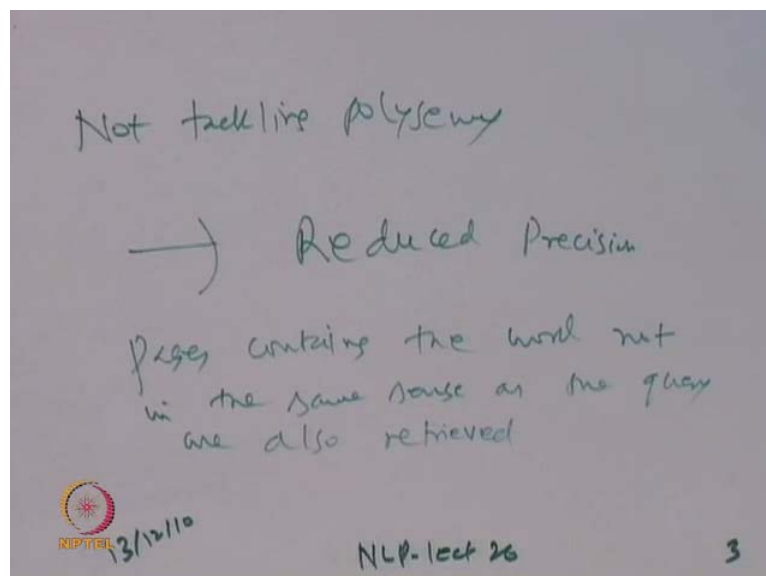 Not tackling polysemy
→ Reduced Precision
pages containing the word not
in the same sense as the query
are also retrieved
NPTEL 13/12/10 NLP-lect 26 3